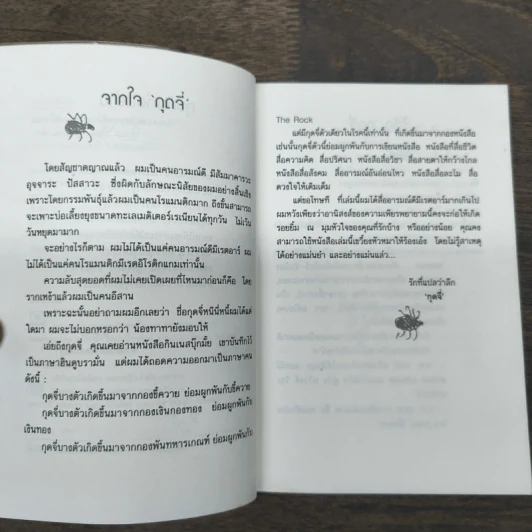 จากใจ 'กุดจี่'
โดยสัญชาตญาณแล้ว ผมเป็นคนอารมณ์ดี มีสัมมาคารวะ
อุจจาระ ปัสสาวะ ซึ่งผิดกับลักษณะนิสัยของผมอย่างสิ้นเชิง
เพราะโดยกรรมพันธุ์แล้วผมเป็นคนโรแมนติกมาก ถึงขั้นสามารถ
จะเพาะบ่อเลี้ยงยุงขนาดทะเลเมดิเตอร์เรเนียนได้ทุกวัน ไม่เว้น
วันหยุดมามาก
จะอย่างไรก็ตาม ผมไม่ได้เป็นแค่คนอารมณ์ดีมีเรดอาร์ ผม
ไม่ได้เป็นแค่คนโรแมนติกมีเรดอิโรติกแถมเท่านั้น
ความลับสุดยอดที่ผมไม่เคยเปิดเผยที่ไหนมาก่อนก็คือ โดย
รากเหง้าแล้วผมเป็นคนอีสาน
เพราะฉะนั้นอย่าถามผมอีกเลยว่า ชื่อกุดจี่หนีนี้หนี้ผมได้แต่
ใดมา ผมจะไม่บอกหรอกว่า น้องทาทายังมอบให้
เอ่ยถึงกุดจี่ คุณเคยอ่านหนังสือกินเนสบุ๊กมั้ย เขาบันทึกไว้
เป็นภาษาฮินดูบรามัน แต่ผมได้ถอดความออกมาเป็นภาษาคน
ดังนี้ :
กุดจี่บางตัวเกิดขึ้นมาจากกองขี้ควาย ย่อมผูกพันกับขี้ควาย
กุดจี่บางตัวเกิดขึ้นมาจากกองเงินกองทอง ย่อมผูกพันกับ
เงินทอง
กุดจี่บางตัวเกิดขึ้นมาจากกองพันทหารเกณฑ์ ย่อมผูกพันกับ
The Rock
แต่มีกุดจี่ตัวเดียวในโรคนี้เท่านั้น ที่เกิดขึ้นมาจากกองหนังสือ
เช่นนั้นกุดจี่ตัวนี้ย่อมผูกพันกับการเขียนหนังสือ หนังสือที่สื่อชีวิต
สื่อความคิด สื่อปริศนา หนังสือสื่อวิชา สื่อสายตาให้กว้างไกล
หนังสือสื่อสังคม สื่ออารมณ์อันอ่อนไหว หนังสือสื่อละไม สื่อ
ดวงใจให้เติมเต็ม
แต่ขอโทษที ที่เล่มนี้ผมได้สื่ออารมณ์ดีมีเรดอาร์มากเกินไป
ผมหวังเพียงว่าอานิสงส์ของความเพียรพยายามนี้คงจะก่อให้เกิด
รอยยิ้ม ณ มุมหัวใจของคุณที่รักบ้าง หรืออย่างน้อย คุณคง
สามารถใช้หนังสือเล่มนี้เขวี้ยงหัวหมาให้ร้องเอ๋ง โดยไม่รู้สาเหตุ
ได้อย่างแม่นยำ และอย่างแม่นแล้ว...
รักที่แปลว่าลึก
'กุดจี่'